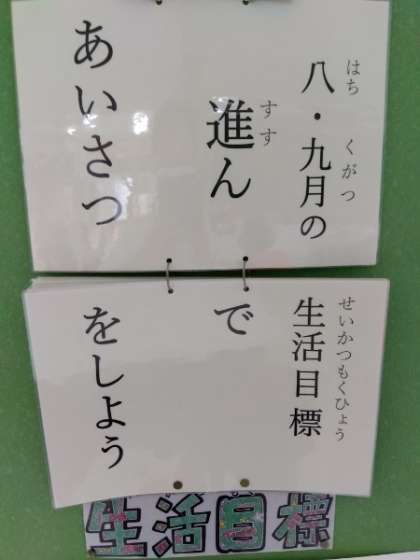 八・九月の生活目標
はち くがつ せいかつもくひょう
進んで
すす
あいさつをしよう
生活目標